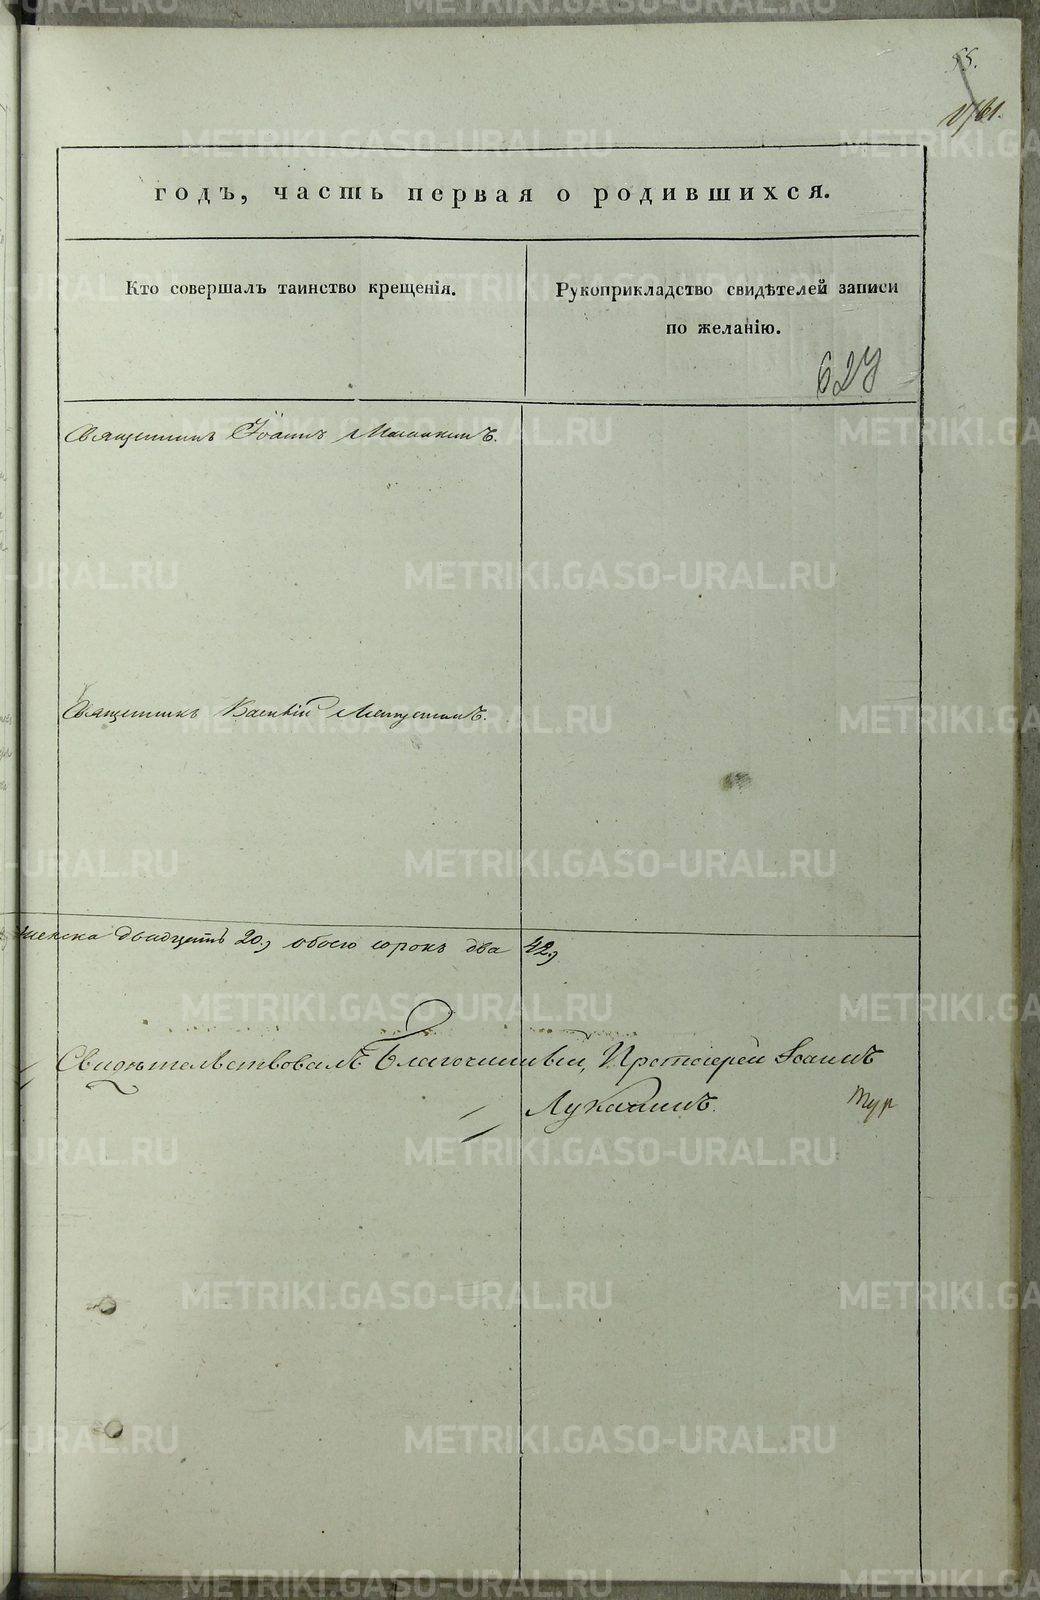 55.
годъ, часть первая о родившихся.
Кто совершалъ таинство крещенія.
Рукоприкладство свидѣтелей записи
по желанію.
627
Священникъ Іоаннъ
Священникъ Василій
женска двадцать 20, обоего сорокъ два 42,
Свидѣтельствовалъ Благочинный, Протоіерей Іоаннъ
Луканинъ.
METRIKI.GASO-URAL.RU